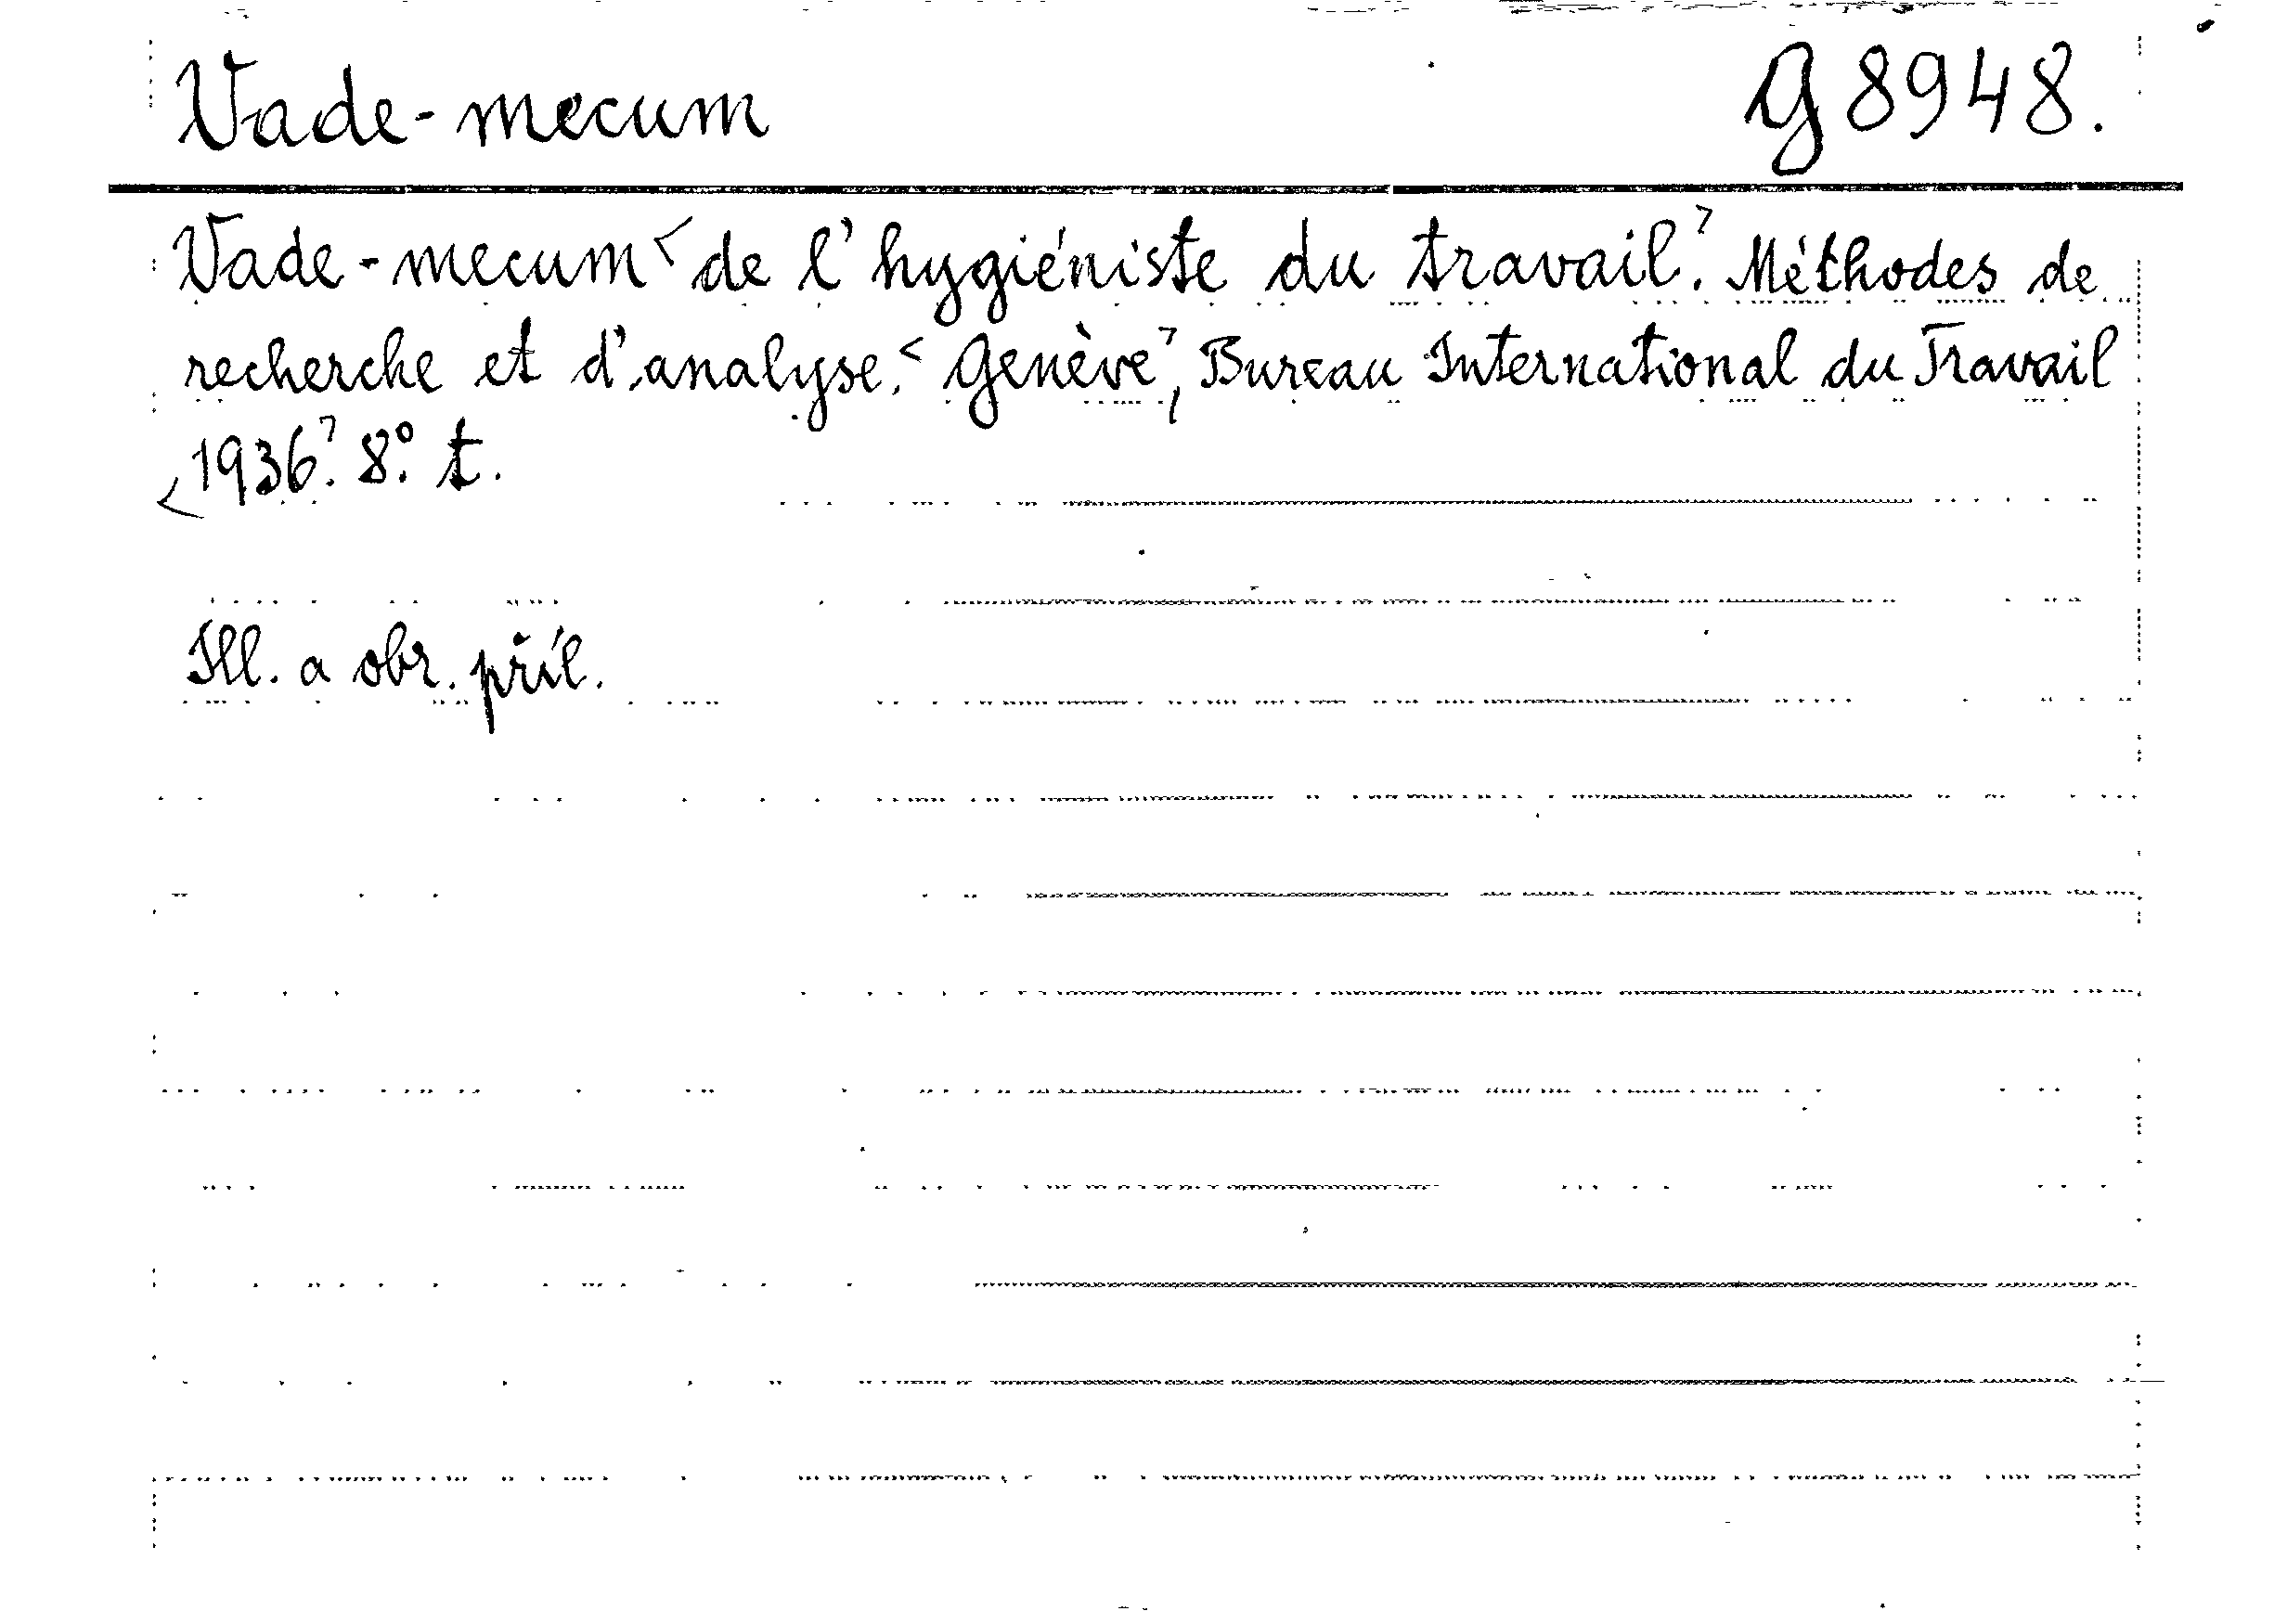 Vade-mecum G 8948.
Vade-mecum < de l'hygiéniste du travail.> Méthodes de
recherche et d'analyse. < Genève>, Bureau International du Travail
<1936>. 8°. t.
Ill. a obr. příl.